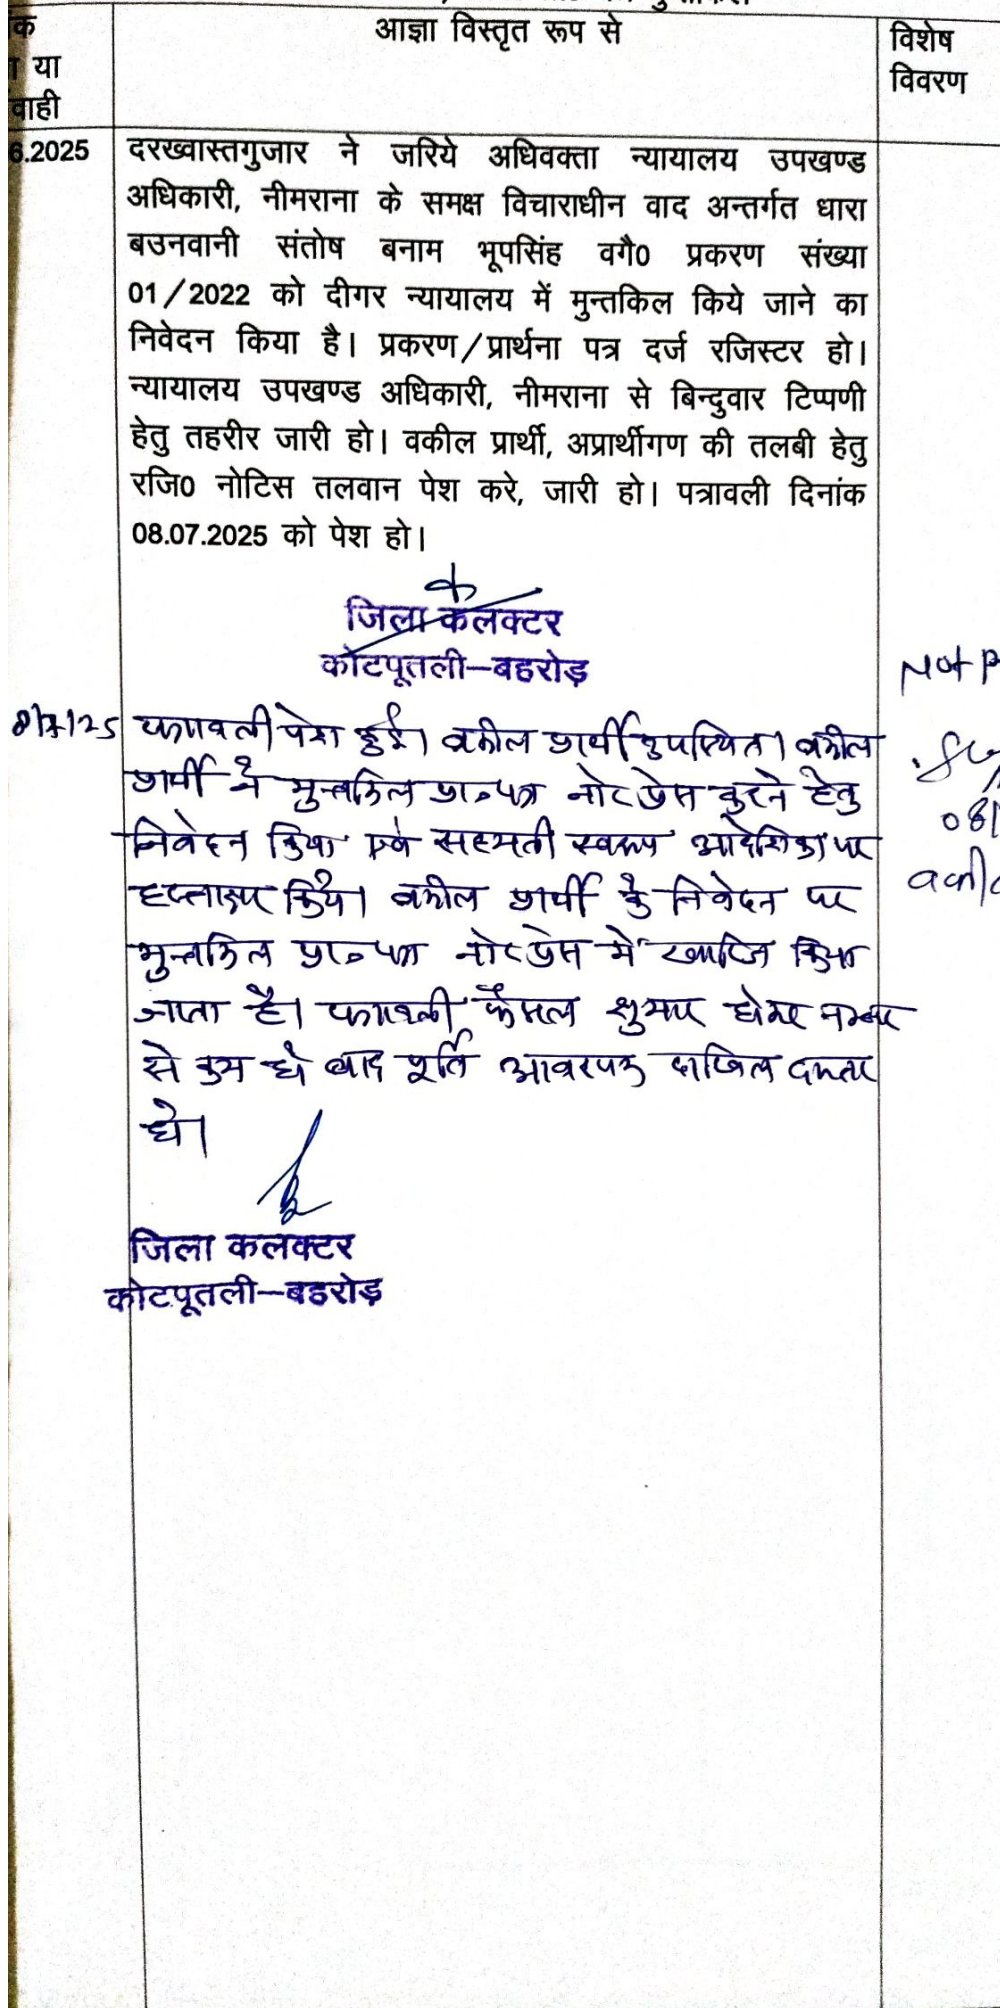 आज्ञा विस्तृत रूप से
विशेष
विवरण
क
या
वाही
6.2025
दरख्वास्तगुजार ने जरिये अधिवक्ता न्यायालय उपखण्ड
अधिकारी, नीमराना के समक्ष विचाराधीन वाद अन्तर्गत धारा
बउनवानी संतोष बनाम भूपसिंह वगै0 प्रकरण संख्या
01/2022 को दीगर न्यायालय में मुन्तकिल किये जाने का
निवेदन किया है। प्रकरण/प्रार्थना पत्र दर्ज रजिस्टर हो।
न्यायालय उपखण्ड अधिकारी, नीमराना से बिन्दुवार टिप्पणी
हेतु तहरीर जारी हो। वकील प्रार्थी, अप्रार्थीगण की तलबी हेतु
रजि0 नोटिस तलवान पेश करे, जारी हो। पत्रावली दिनांक
08.07.2025 को पेश हो।
जिला कलक्टर
कोटपूतली–बहरोड़
Not P
8/7/25 पत्रावली पेश हुई। वकील प्रार्थी उपस्थित। वकील
प्रार्थी ने मुन्तकिल प्रा०पत्र नोट प्रेस करने हेतु
08/
निवेदन किया एवं सहमती स्वरूप आदेशिका पर
हस्ताक्षर किये। वकील प्रार्थी के निवेदन पर
वकी
मुन्तकिल प्रा०पत्र नोट प्रेस में खारिज किया
जाता है। पत्रावली फैसल शुमार होकर नम्बर
से कम हो बाद पूर्ति आवश्यक दाखिल दफ्तर
हो।
जिला कलक्टर
कोटपूतली–बहरोड़